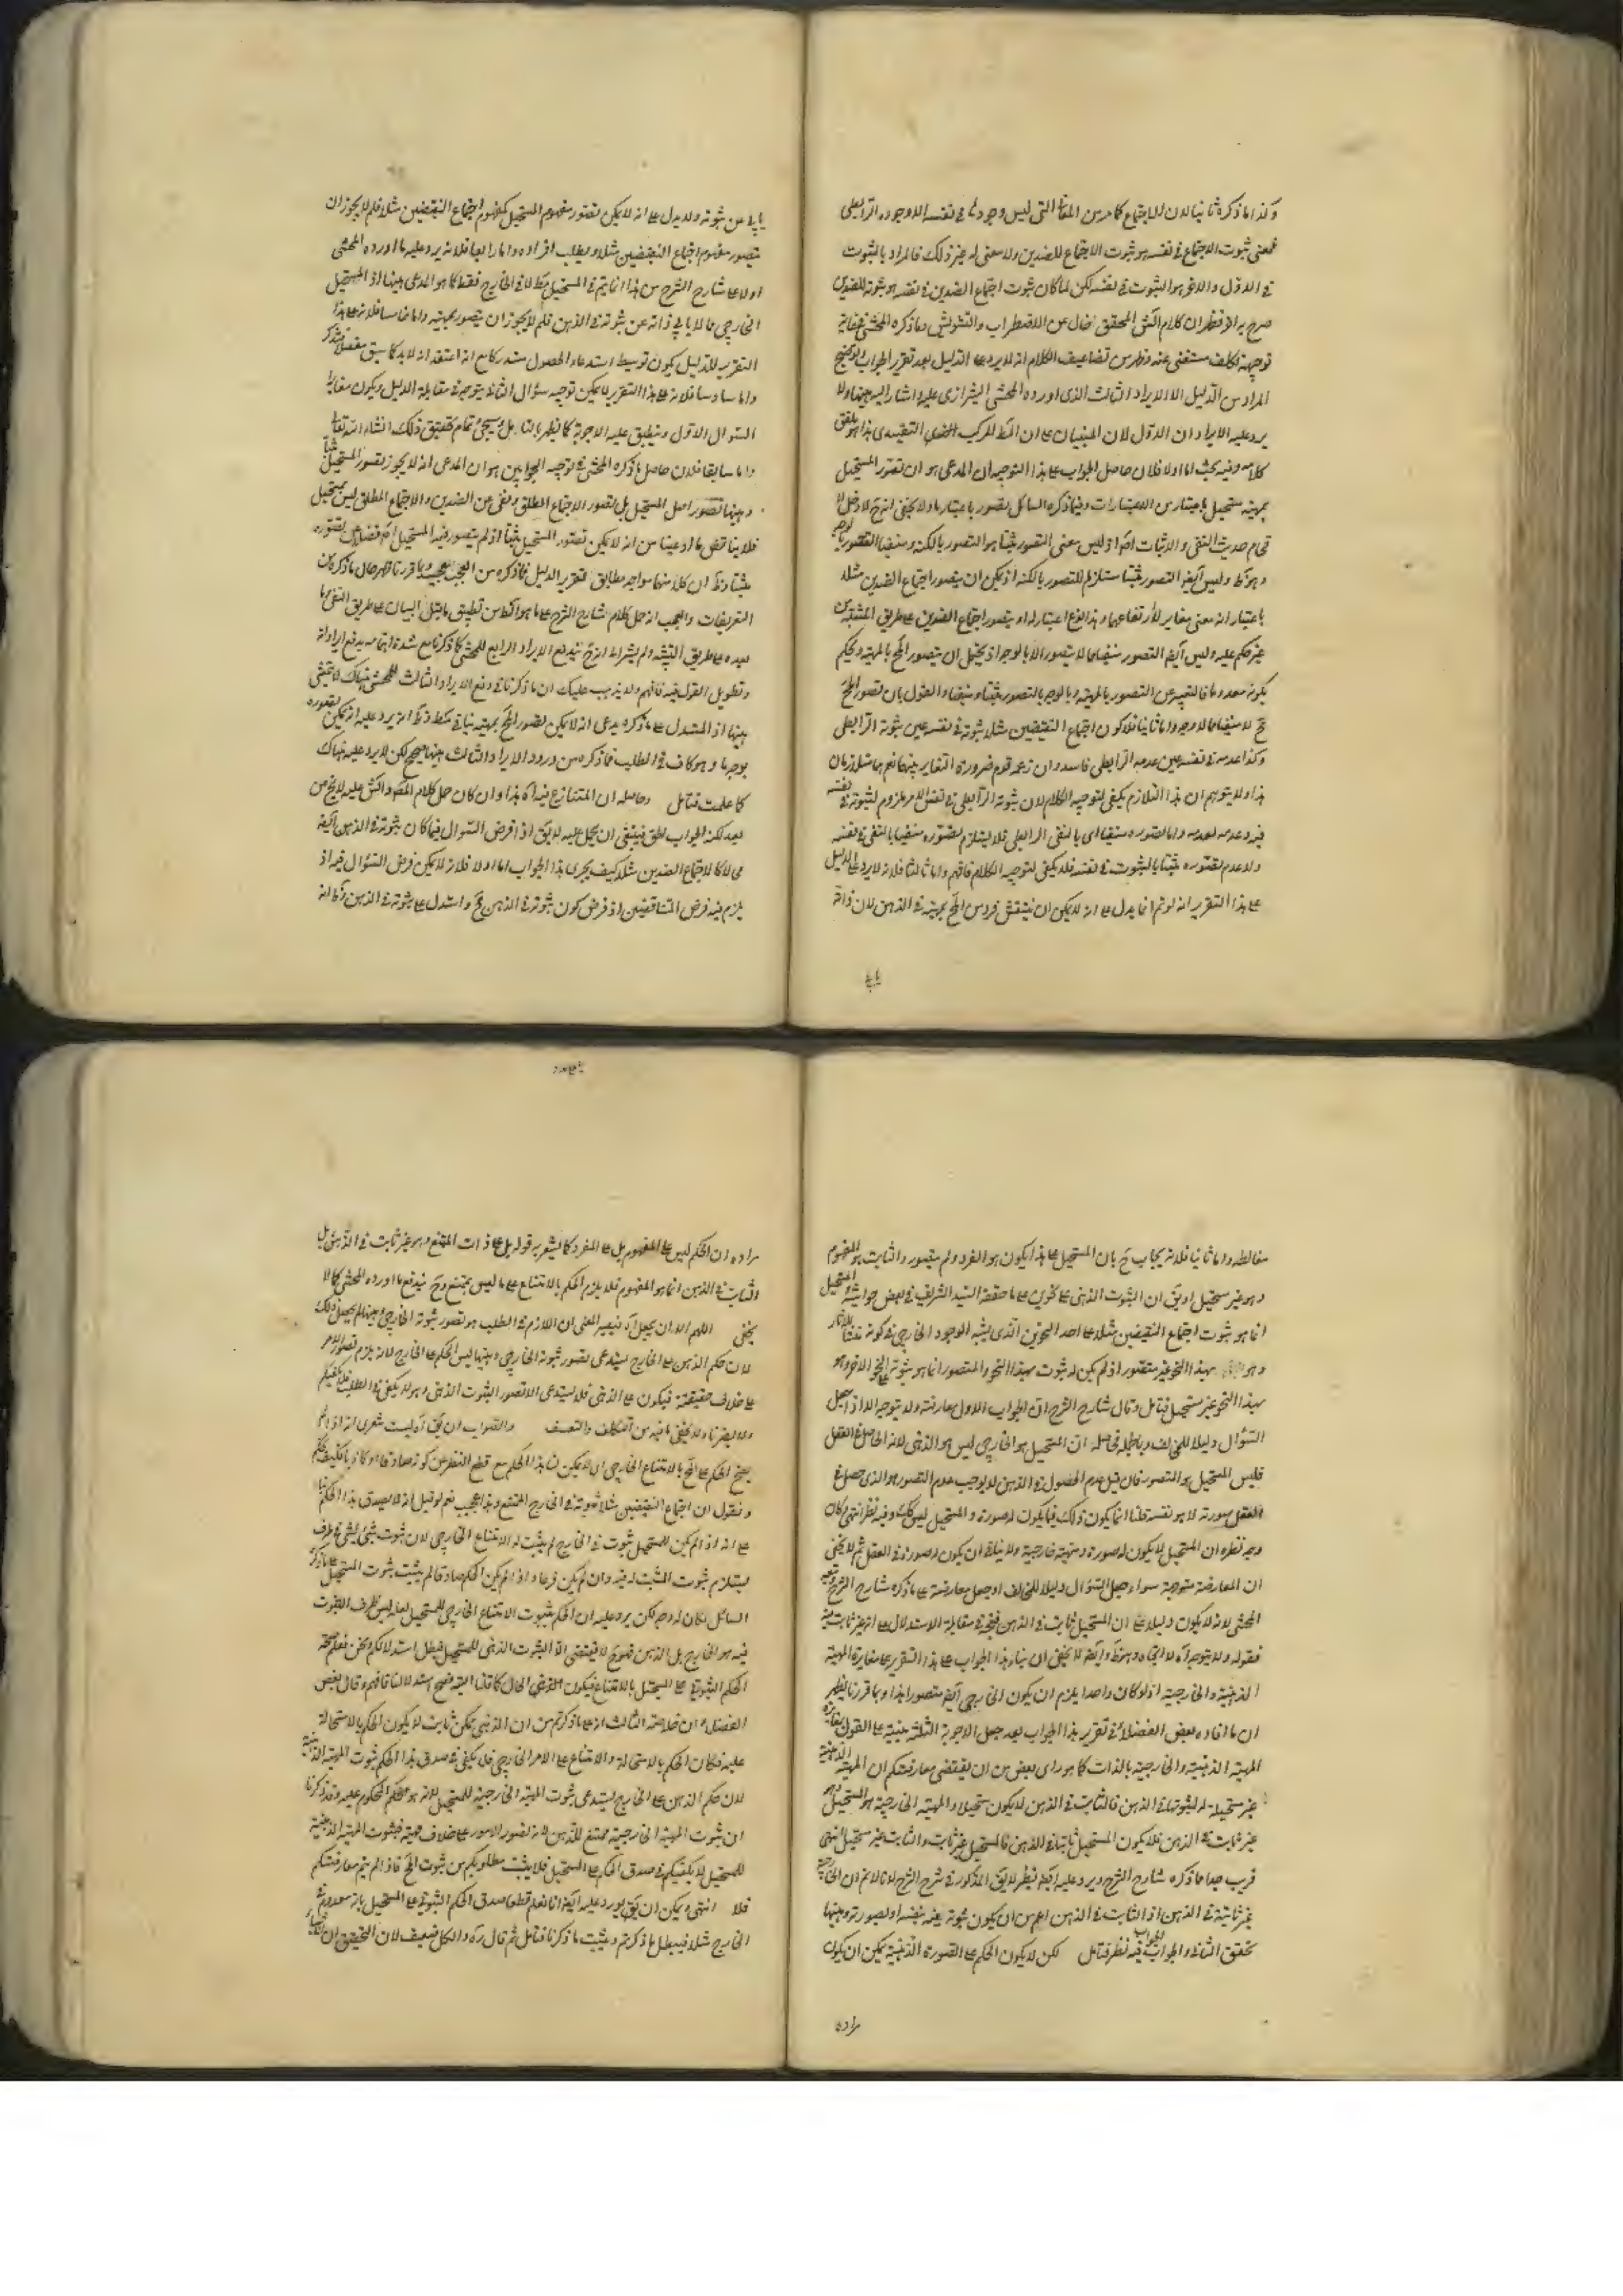 وكذا ما ذكره ثانيا لان الاجتماع كما مر من المعاني التي ليس وجودها في نفسه الا وجوده الرابطي
فمعنى ثبوت الاجتماع في نفسه هو ثبوت الاجتماع للضدين ولا معنى له غير ذلك فالمراد بالثبوت
في الاول والاخر هو الثبوت في نفسه لكن لما كان ثبوت اجتماع الضدين في نفسه هو ثبوته للضدين
صرح به الاخر فظهر ان كلام المحشي المحقق خال عن الاضطراب والتشويش وما ذكره المحشي في
توجيهه تكلف مستغنى عنه وظهر من تضاعيف الكلام انه لا يرد على الدليل بعد تقرير الجواب وتوضيح
المراد من الدليل الا الايراد الثالث الذي اورده المحشي الشيرازي عليه واشار اليه ههنا ولا
يرد عليه الايراد ان الاول لان المبنيان على ان المركب التقييدي هذا
كلامه وفيه بحث اما اولا فلان حاصل الجواب على هذا التوجيه ان المدعى هو ان تصور المستحيل
بمهيته مستحيل باعتبار من الاعتبارات وفيما ذكره السائل تصور باعتبار ما ولا يخفى انه ح لا دخل لا
في حديث النفي والاثبات اذ ليس معنى التصور مثبتا هو التصور بالكنه ومنفيا التصور
وليس ايضا التصور مثبتا مستلزم للتصور بالكنه اذ يمكن ان يتصور اجتماع الضدين مثلا
باعتبار انه معنى مغاير لارتفاعهما وهذا نوع اعتبار له او يتصور اجتماع الضدين على طريق
غير حكم عليه وليس ايضا التصور منفيا مما لا يتصور الا بالوجه اذ يحتمل ان يتصور المح بالمهية ويحكم
بكونه معدوما فالتعبير عن التصور بالمهية وبالوجه بالتصور مثبتا ومنفيا والقول بان تصور المح
ح لا منفيا مما لا وجه واما ثانيا فلان كون اجتماع النقيضين مثلا ثبوته في نفسه عين ثبوته الرابطي
وكذا عدمه في نفسه عين عدمه الرابطي فاسد وان زعمه قوم ضرورة التغاير بينهما نعم هما متلازمان
هذا ولا يتوهم ان هذا التلازم يكفي لتوجيه الكلام لان ثبوته الرابطي في نفس الامر ملزوم لثبوته في نفسه
فيه وعدمه لعدمه واما تصوره منفيا اي بالنفي الرابطي فلا يستلزم تصوره منفيا بالنفي في نفسه
ولا عدم تصوره مثبتا بالثبوت في نفسه فلا يكفي لتوجيه الكلام فافهم واما ثالثا فلانه لا يرد على الدليل
على هذا التقرير انه لو تم انما يدل على انه لا يمكن ان ينتقش فرد من المح بمهيته في الذهن لان ذاته
يابى
يابى عن ثبوته ولا يدل على انه لا يمكن تصور مفهوم المستحيل كمفهوم اجتماع النقيضين مثلا فلم لا يجوز ان
يتصور مفهوم اجتماع النقيضين مثلا ويطلب افراده واما رابعا فلانه يرد عليه ما اورده المحشي
اولا على شارح الشرح من هذا انما يتم في المستحيل مطلقا لا في الخارج فقط كما هو المدعى ههنا اذ المستحيل
الخارجي مما لا يابى ذاته عن ثبوته في الذهن فلم لا يجوز ان يتصور بمهيته واما خامسا فلانه على هذا
التقرير للدليل يكون توسيط استدعاء الحصول مستدركا مع انه اعتقد انه لابد كما سبق مفصلا
واما سادسا فلانه على هذا التقرير لا يمكن توجيه سؤال الثاني بتوجيه في مقابلة الدليل ويكون مغايرا
السؤال الاول وينطبق عليه الاجوبة كما يظهر بالتامل وسيجئ تمام تحقيق ذلك انشاء الله تعالى
واما سابعا فلان حاصل ما ذكره المحشي في توجيه الجوابين هو ان المدعى انه لا يجوز تصور المستحيل مثبتا
وههنا تصور اصل المستحيل بل تصور الاجتماع المطلق ونفى عن الضدين والاجتماع المطلق ليس بمستحيل
فلا يناقض ما ادعينا من انه لا يمكن تصور المستحيل مثبتا اذ لم يتصور فيه المستحيل فضلا عن تصوره
مثبتا وظ ان كلا منهما مواجه مطابق لتقرير الدليل فما ذكره من العجب عجيب وبما قررنا ظهر حال ما ذكره من
التعريفات والعجب انه حمل كلام شارح الشرح على ما هو من تطبيق ما قبل البيان على طريق النفي
بعده على طريق التشبه ولم يشترط انه ح يندفع الايراد الرابع للمحشي كما ذكرنا مع شدة اهتمامه بدفع ايراداته
وتطويل القول فيه فافهم ولا يذهب عليك ان ما ذكرنا في دفع الايراد الثالث للمحشي هناك لا يتمشى
ههنا اذ المستدل على ما ذكره يدعى انه لا يمكن تصور المح بمهيته وظ انه يرد عليه انه يمكن تصوره
بوجه ما وهو كاف في الطلب فما ذكره من ورود الايراد الثالث ههنا صحيح لكن لا يرد عليه هناك
كما علمت فتامل وحاصله ان المتنازع فيه آه هذا وان كان حمل كلام المص والمحشي عليه لا يخ من
بعد لكنه الجواب الحق فينبغي ان يحمل عليه لا يق اذ افرض السؤال فيما كان ثبوته في الذهن ايضا
محالا كالاجتماع الضدين مثلا كيف يجري هذا الجواب اما اولا فلانه لا يمكن فرض السؤال فيه اذ
يلزم فيه فرض المتناقضين اذ فرض كون ثبوته في الذهن مح واستدل على ثبوته في الذهن وظ انه
مغالطة واما ثانيا فلانه يجاب ح بان المستحيل على هذا يكون هو الفرد ولم يتصور والثابت هو المفهوم
وهو غير مستحيل او يق ان الثبوت الذهني على نحوين على ما حققه السيد الشريف في بعض حواشيه والمستحيل
انما هو ثبوت اجتماع النقيضين مثلا على احد النحوين الذي يشبه الوجود الخارجي في كونه منشأ للاثار
وهو بهذا النحو غير متصور اذ لم يكن له ثبوت بهذا النحو والمتصور انما هو ثبوته على النحو الاخر وهو
بهذا النحو غير مستحيل فتامل وقال شارح الشرح ان الجواب الاول معارضة ولا يتوجه الا اذا جعل
السؤال دليلا للمخالف وبالجملة فحاصله ان المستحيل هو الخارجي ليس هو الذهني لانه الحاصل في العقل
فليس المستحيل هو المتصور فان قيل عدم الحصول في الذهن لا يوجب عدم التصور هو الذي حصل في
العقل صورته لا هو نفسه قلنا انما يكون ذلك فيما يكون له صورة والمستحيل ليس كذلك وفيه نظر انتهى كان
وجه نظره ان المستحيل لا يكون له صورة ومهية خارجية ولا ينافي ان يكون له صورة في العقل ثم لا يخفى
ان المعارضة متوجهة سواء جعل السؤال دليلا للمخالف او جعل معارضة على ما ذكره شارح الشرح وتبعه
المحشي لانه لا يكون دليلا على ان المستحيل ثابت في الذهن فيقع في مقابلة الاستدلال على انه غير ثابت فيه
فقوله ولا يتوجه آه لا اتجاه وهو ظ وايضا لا يخفى ان بناء هذا الجواب على هذا التقرير على مغايرة المهية
الذهنية والخارجية اذ لو كان واحدا يلزم ان يكون الخارجي ايضا متصورا هذا وبما قررنا يظهر
ان ما افاده بعض الفضلاء في تقرير هذا الجواب بعد جعل الاجوبة الثلثة مبنية على القول بمغايرة
المهية الذهنية والخارجية بالذات كما هو راى بعض من ان يقتضى معارضتكم ان المهية الذهنية
غير مستحيلة لثبوتها في الذهن فالثابت في الذهن لا يكون مستحيلا والمهية الخارجية هو المستحيل وهو
غير ثابت في الذهن فلا يكون المستحيل ثابتا في الذهن فالمستحيل غير ثابت والثابت غير مستحيل انتهى
قريب جدا مما ذكره شارح الشرح ويرد عليه ايضا نظر لا يق المذكور في شرح الشرح لانا لا نم ان الخارجية
غير ثابتة في الذهن اذ الثابت في الذهن اعم من ان يكون ثبوته فيه بنفسه او لصورته وههنا
تحقق الثاني والجواب الجواب فيه نظر فتامل لكن لا يكون الحكم على الصورة الذهنية يمكن ان يكون
مراده
مراده ان الحكم ليس على المفهوم بل على المفرد كما يشعر به قوله بل على ذات الممتنع وهو غير ثابت في الذهن بل
الثابت في الذهن انما هو المفهوم فلا يلزم الحكم بالامتناع على ما ليس بممتنع وح يندفع ما اورده المحشي كما لا
يخفى اللهم الا ان يحمل آه فيصير المعنى ان اللازم في الطلب هو تصور ثبوته الخارجي وههنا لم يحصل ذلك
لان حكم الذهن على الخارج يستدعى تصور ثبوته الخارجي وههنا ليس الحكم على الخارج لانه يلزم تصور الامر
على خلاف حقيقته فيكون على الذهني فلا يستدعى الا تصور الثبوت الذهني وهو لا يكفي في الطلب فلا يفيدكم
ولا يضرنا ولا يخفى ما فيه من التكلف والتعسف والصواب ان يق آه ليت شعري انه اذا لم
يصح الحكم على المح بالامتناع الخارجي اي لا يمكن منا هذا الحكم مع قطع النظر عن كونه صادقا او كاذبا فكيف نحكم
ونقول ان اجتماع النقيضين مثلا ثبوته في الخارج ممتنع وهذا عجيب نعم لو قيل انه لا يصدق هذا الحكم بناء
على انه اذ لم يكن للمستحيل ثبوت في الخارج لم يثبت له الامتناع الخارجي لان ثبوت شئ لشئ في ظرف
يستلزم ثبوت المثبت له فيه وان لم يكن فرعا واذا لم يكن الحكم صادقا لم يثبت ثبوت المستحيل على ما ذكره
السائل لكان له وجه لكن يرد عليه ان الحكم بثبوت الامتناع الخارجي للمستحيل لعله ليس ظرف الثبوت
فيه هو الخارج بل الذهن فهو ح لا يقتضى الا الثبوت الذهني للمستحيل فبطل استدلالكم ونحن نعلم صحة
الحكم الثبوتي على المستحيل بالامتناع فيكون الذهني الحال كما قلنا البتة فصح استدلالنا فافهم وقال بعض
الفضلاء ان خلاصة الثالث انه على ما ذكرتم من ان الذهني ممكن ثابت لا يكون الحكم بالاستحالة
عليه فكان الحكم بالاستحالة والامتناع على الامر الخارجي فلا يكفى في صدق هذا الحكم ثبوت المهية الذهنية
لان حكم الذهن على الخارج يستدعى ثبوت المهية الخارجية للمستحيل لانه هو المحكوم عليه وقد ذكرنا
ان ثبوت المهية الخارجية ممتنع للذهن لانه تصور الامور على خلاف مهيته فثبوت المهية الذهنية
للمستحيل لا يكفيكم في صدق الحكم على المستحيل فلا يثبت مطلوبكم من ثبوت المح فاذا لم يتم معارضتكم
قلا انتهى ويمكن ان يق يورد عليه ايضا انا نعلم قطعا صدق الحكم الثبوتي على المستحيل بانه معدوم في
الخارج مثلا فيبطل ما ذكرتم ويثبت ما ذكرنا فتامل ثم قال ره والكل ضعيف لان التحقيق ان